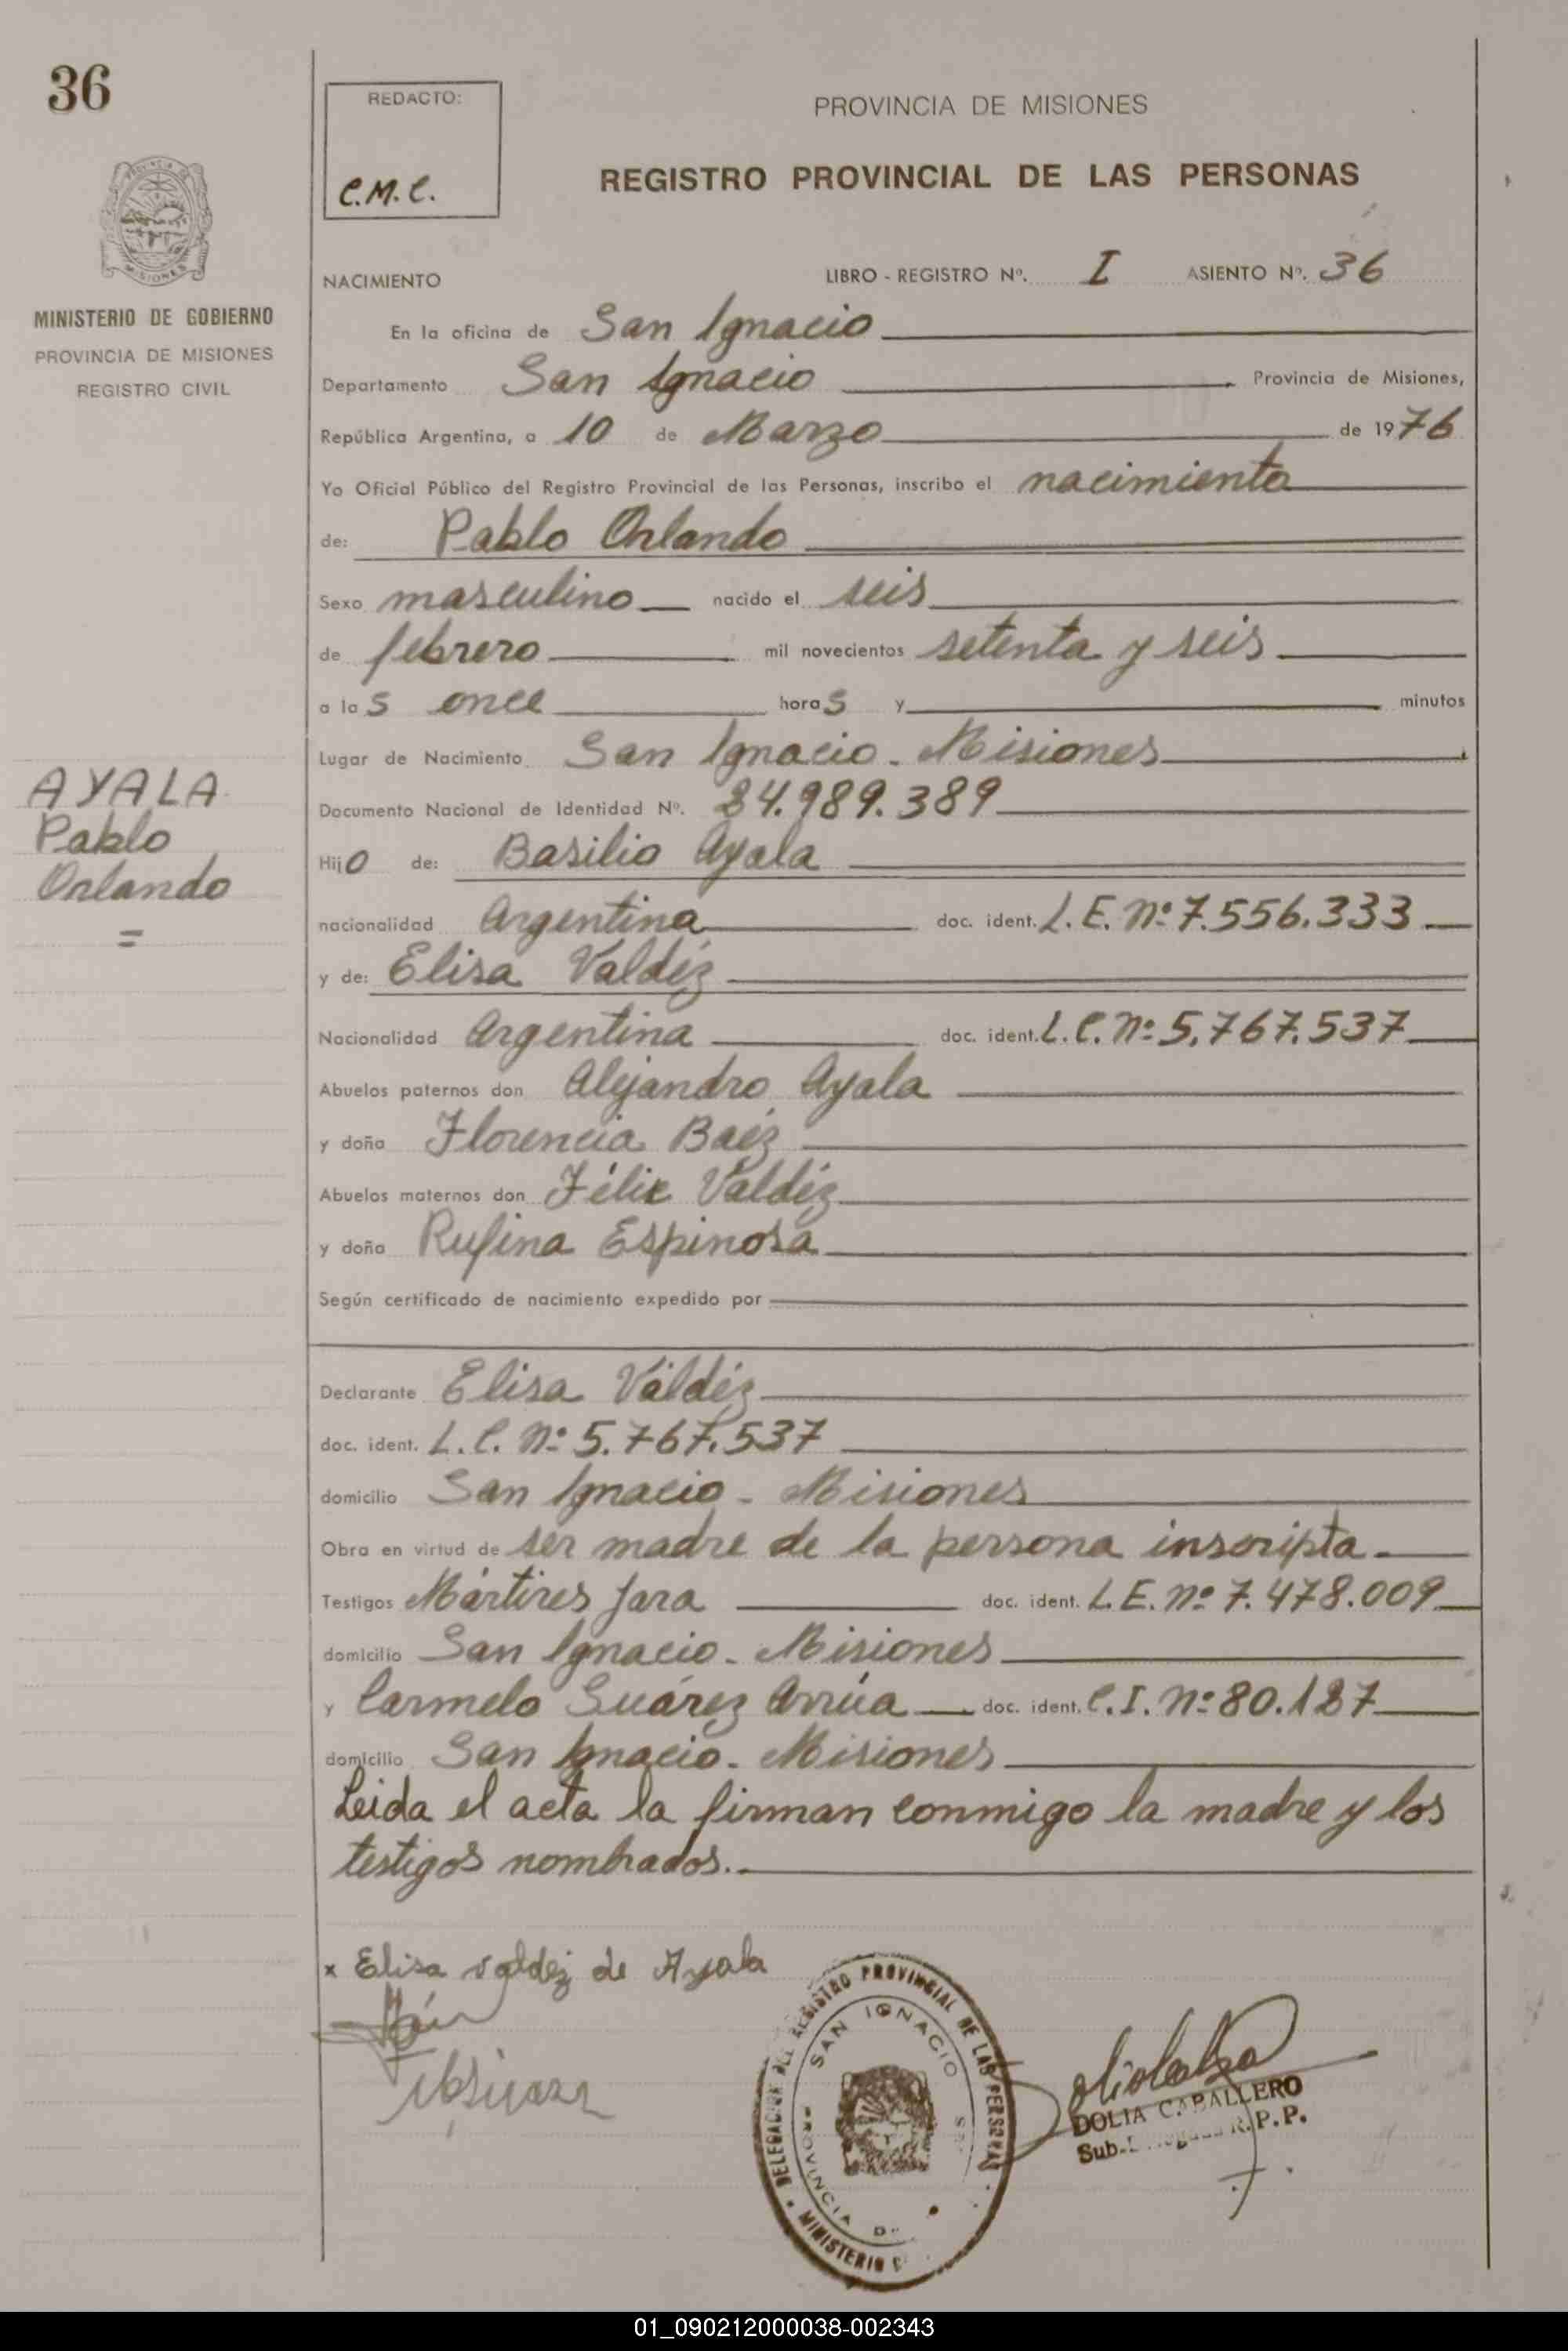 36
REDACTO:
C.M.C.
PROVINCIA DE MISIONES
REGISTRO PROVINCIAL DE LAS PERSONAS
MINISTERIO DE GOBIERNO
PROVINCIA DE MISIONES
REGISTRO CIVIL
NACIMIENTO LIBRO - REGISTRO Nº. I ASIENTO Nº. 36
En la oficina de San Ignacio
Departamento San Ignacio Provincia de Misiones,
República Argentina, a 10 de Marzo de 1976
Yo Oficial Público del Registro Provincial de las Personas, inscribo el nacimiento
de: Pablo Orlando
Sexo masculino nacido el seis
de febrero mil novecientos setenta y seis
a las once horas y minutos
Lugar de Nacimiento San Ignacio - Misiones
Documento Nacional de Identidad Nº. 24.989.389
AYALA
Pablo
Orlando
=
Hijo de: Basilio Ayala
nacionalidad Argentina doc. ident. L.E. nº 7.556.333
y de: Elisa Valdéz
Nacionalidad Argentina doc. ident. L.C. nº 5.767.537
Abuelos paternos don Alejandro Ayala
y doña Florencia Baéz
Abuelos maternos don Félix Valdéz
y doña Rufina Espinosa
Según certificado de nacimiento expedido por
Declarante Elisa Valdéz
doc. ident. L.C. nº 5.767.537
domicilio San Ignacio - Misiones
Obra en virtud de ser madre de la persona inscripta.
Testigos Mártires Jara doc. ident. L.E. nº 7.478.009
domicilio San Ignacio - Misiones
y Carmelo Suárez Arrúa doc. ident. C.I. nº 80.187
domicilio San Ignacio - Misiones
Leida el acta la firman conmigo la madre y los
testigos nombrados.
x Elisa valdez de Ayala
DELEGACION DEL REGISTRO PROVINCIAL DE LAS PERSONAS
SAN IGNACIO
PROVINCIA DE
MINISTERIO
DOLIA CABALLERO
Sub- R.P.P.
01_090212000038-002343